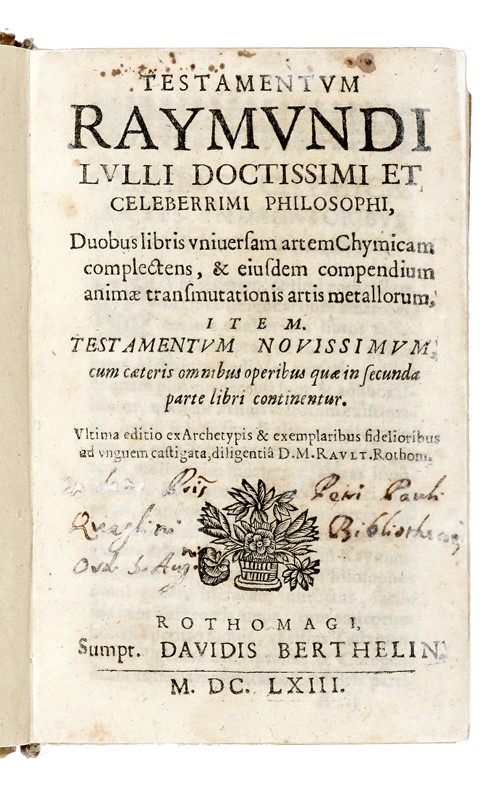 TESTAMENTVM
RAYMVNDI
LVLLI DOCTISSIMI ET
CELEBERRIMI PHILOSOPHI,
Duobus libris vniuerſam artem Chymicam
complectens, & eiuſdem compendium
animæ tranſmutationis artis metallorum,
ITEM.
TESTAMENTVM NOVISSIMVM,
cum cæteris omnibus operibus quæ in ſecunda
parte libri continentur.
Vltima editio ex Archetypis & exemplaribus fidelioribus
ad vnguem caſtigata, diligentiâ D. M. RAVLT. Rothom.
Petri Pauli
Bibliothecæ
Ord. S. Aug.
ROTHOMAGI,
Sumpt. DAVIDIS BERTHELIN.
M. DC. LXIII.